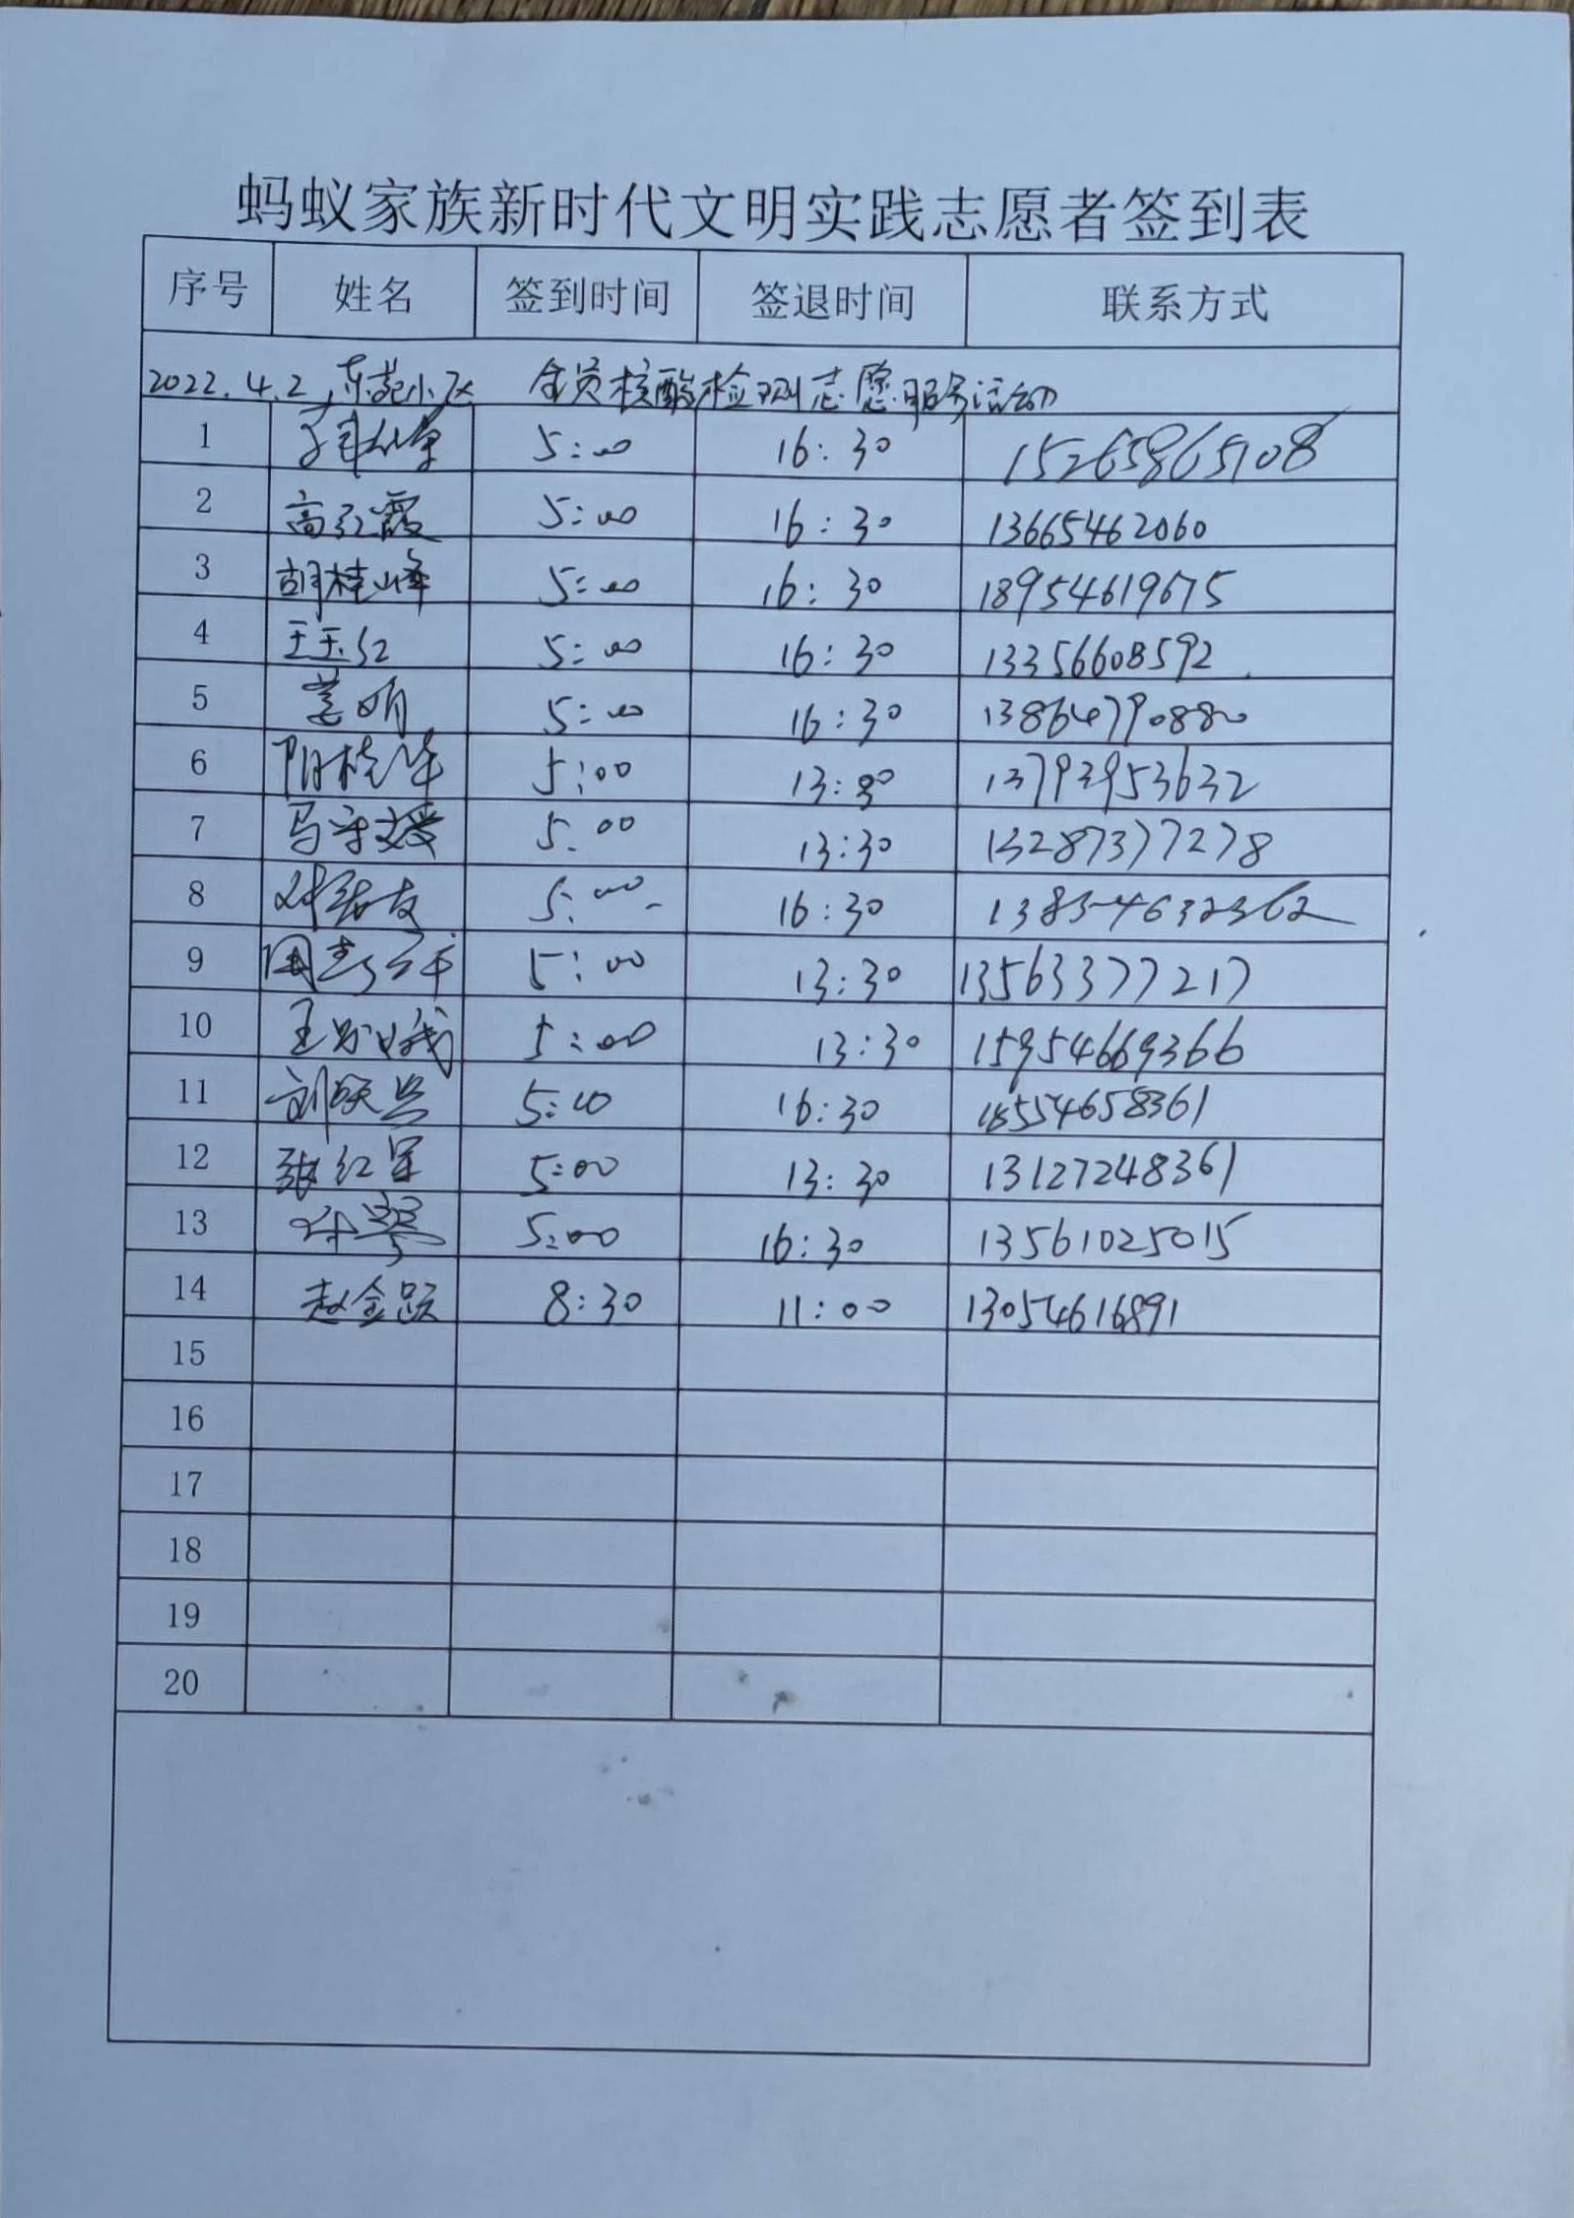 蚂蚁家族新时代文明实践志愿者签到表
序号 姓名 签到时间 签退时间 联系方式
2022.4.2,东苑小区 全员核酸检测志愿服务活动
1 5:00 16:30 15265865908
2 高红霞 5:00 16:30 13665462060
3 胡桂峰 5:00 16:30 18954619675
4 王玉红 5:00 16:30 13356608592
5 姜明 5:00 16:30 13864790880
6 5:00 13:30 13793953632
7 马守媛 5:00 13:30 13287377278
8 5:00 16:30
9 5:00 13:30 13563377217
10 王 5:00 13:30 15954669366
11 刘跃兵 5:00 16:30 18554658361
12 张红军 5:00 13:30 13127248361
13 5:00 16:30 13561025015
14 赵金跃 8:30 11:00 13054616891
15
16
17
18
19
20